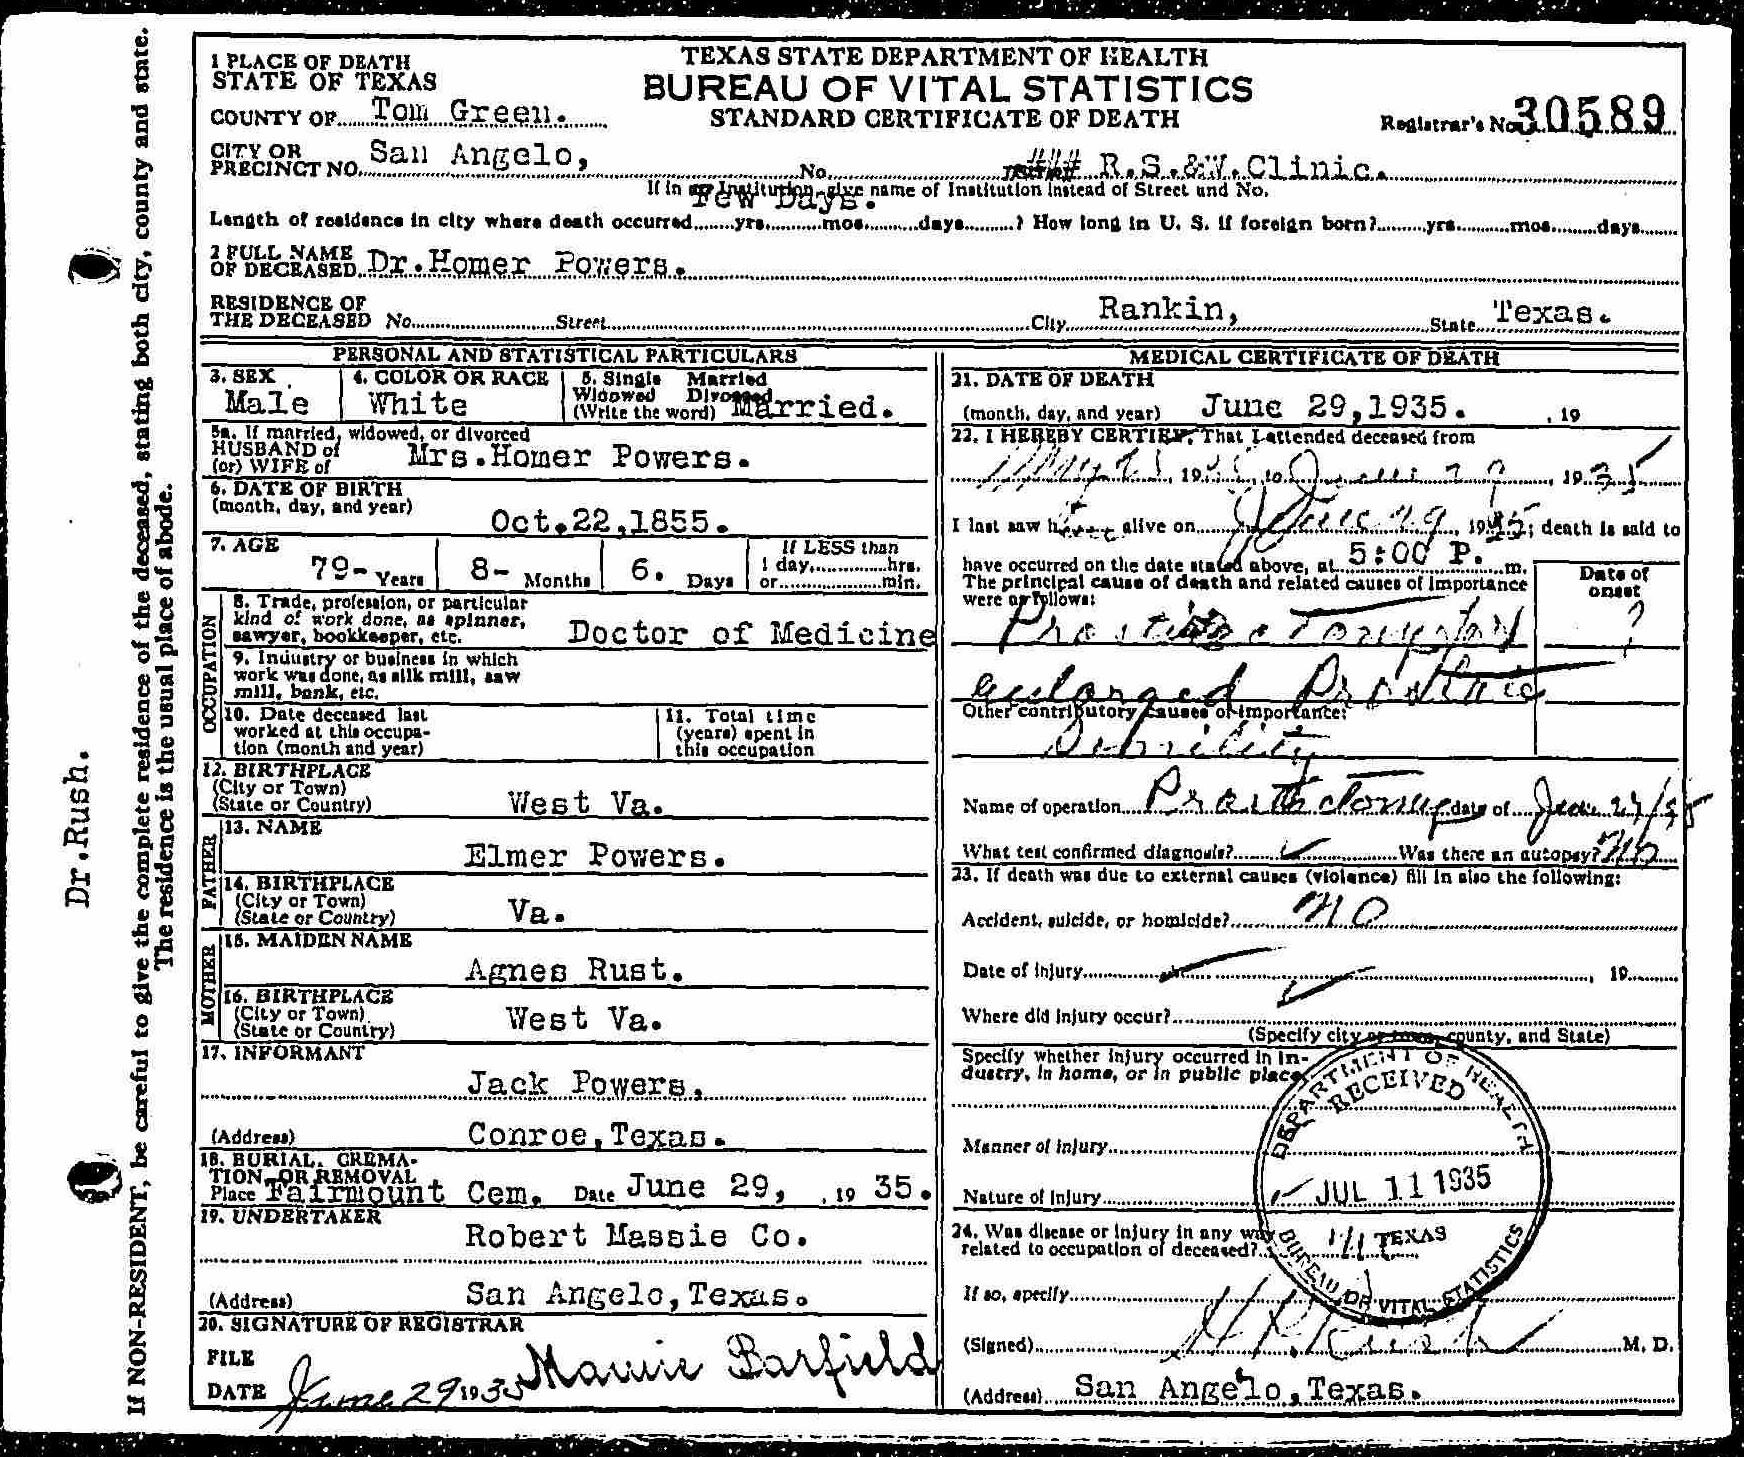 If NON-RESIDENT, be careful to give the complete residence of the deceased, stating both city, county and state.
The residence is the usual place of abode.
Dr.Rush.
1 PLACE OF DEATH
STATE OF TEXAS
COUNTY OF Tom Green.
TEXAS STATE DEPARTMENT OF HEALTH
BUREAU OF VITAL STATISTICS
STANDARD CERTIFICATE OF DEATH
Registrar's No. 30589
CITY OR
PRECINCT NO. San Angelo, No. ### R.S.&W.Clinic.
If in an Institution give name of Institution instead of Street and No.
Few Days.
Length of residence in city where death occurred yrs. mos. days ? How long in U. S. if foreign born? yrs. mos. days
2 FULL NAME
OF DECEASED Dr.Homer Powers.
RESIDENCE OF
THE DECEASED No. Street City Rankin, State Texas.
PERSONAL AND STATISTICAL PARTICULARS
3. SEX
Male
4. COLOR OR RACE
White
5. Single Married
Widowed Divorced
(Write the word) Married.
5a. If married, widowed, or divorced
HUSBAND of
(or) WIFE of Mrs.Homer Powers.
6. DATE OF BIRTH
(month, day, and year) Oct.22,1855.
7. AGE
79- Years 8- Months 6. Days
If LESS than
1 day, hrs.
or min.
OCCUPATION
8. Trade, profession, or particular
kind of work done, as spinner,
sawyer, bookkeeper, etc. Doctor of Medicine
9. Industry or business in which
work was done, as silk mill, saw
mill, bank, etc.
10. Date deceased last
worked at this occupa-
tion (month and year)
11. Total time
(years) spent in
this occupation
12. BIRTHPLACE
(City or Town)
(State or Country) West Va.
FATHER
13. NAME
Elmer Powers.
14. BIRTHPLACE
(City or Town)
(State or Country) Va.
MOTHER
15. MAIDEN NAME
Agnes Rust.
16. BIRTHPLACE
(City or Town)
(State or Country) West Va.
17. INFORMANT
Jack Powers.
(Address) Conroe,Texas.
18. BURIAL, CREMA-
TION, OR REMOVAL
Place Fairmount Cem. Date June 29, , 19 35.
19. UNDERTAKER
Robert Massie Co.
(Address) San Angelo,Texas.
20. SIGNATURE OF REGISTRAR
FILE
DATE June 29 1935 Mamie Barfield
MEDICAL CERTIFICATE OF DEATH
21. DATE OF DEATH
(month, day, and year) June 29,1935. , 19
22. I HEREBY CERTIFY, That I attended deceased from
May 19 to June 29, 1935
I last saw h alive on June 29, 1935; death is said to
have occurred on the date stated above, at 5:00 P. m.
The principal cause of death and related causes of importance
were as follows:
Date of
onset
Prostatectomy for ?
enlarged Prostate
Other contributory causes of importance:
Name of operation Prostatectomy date of June 27/35
What test confirmed diagnosis? Was there an autopsy? No
23. If death was due to external causes (violence) fill in also the following:
Accident, suicide, or homicide? NO
Date of injury , 19
Where did injury occur?
(Specify city or town, county, and State)
Specify whether injury occurred in in-
dustry, in home, or in public place
Manner of injury
Nature of injury
24. Was disease or injury in any way
related to occupation of deceased?
If so, specify
(Signed) H.K. Rush M. D.
(Address) San Angelo,Texas.
DEPARTMENT OF HEALTH
RECEIVED
JUL 11 1935
TEXAS
BUREAU OF VITAL STATISTICS